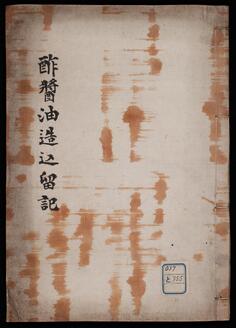 酢醬油造込留記